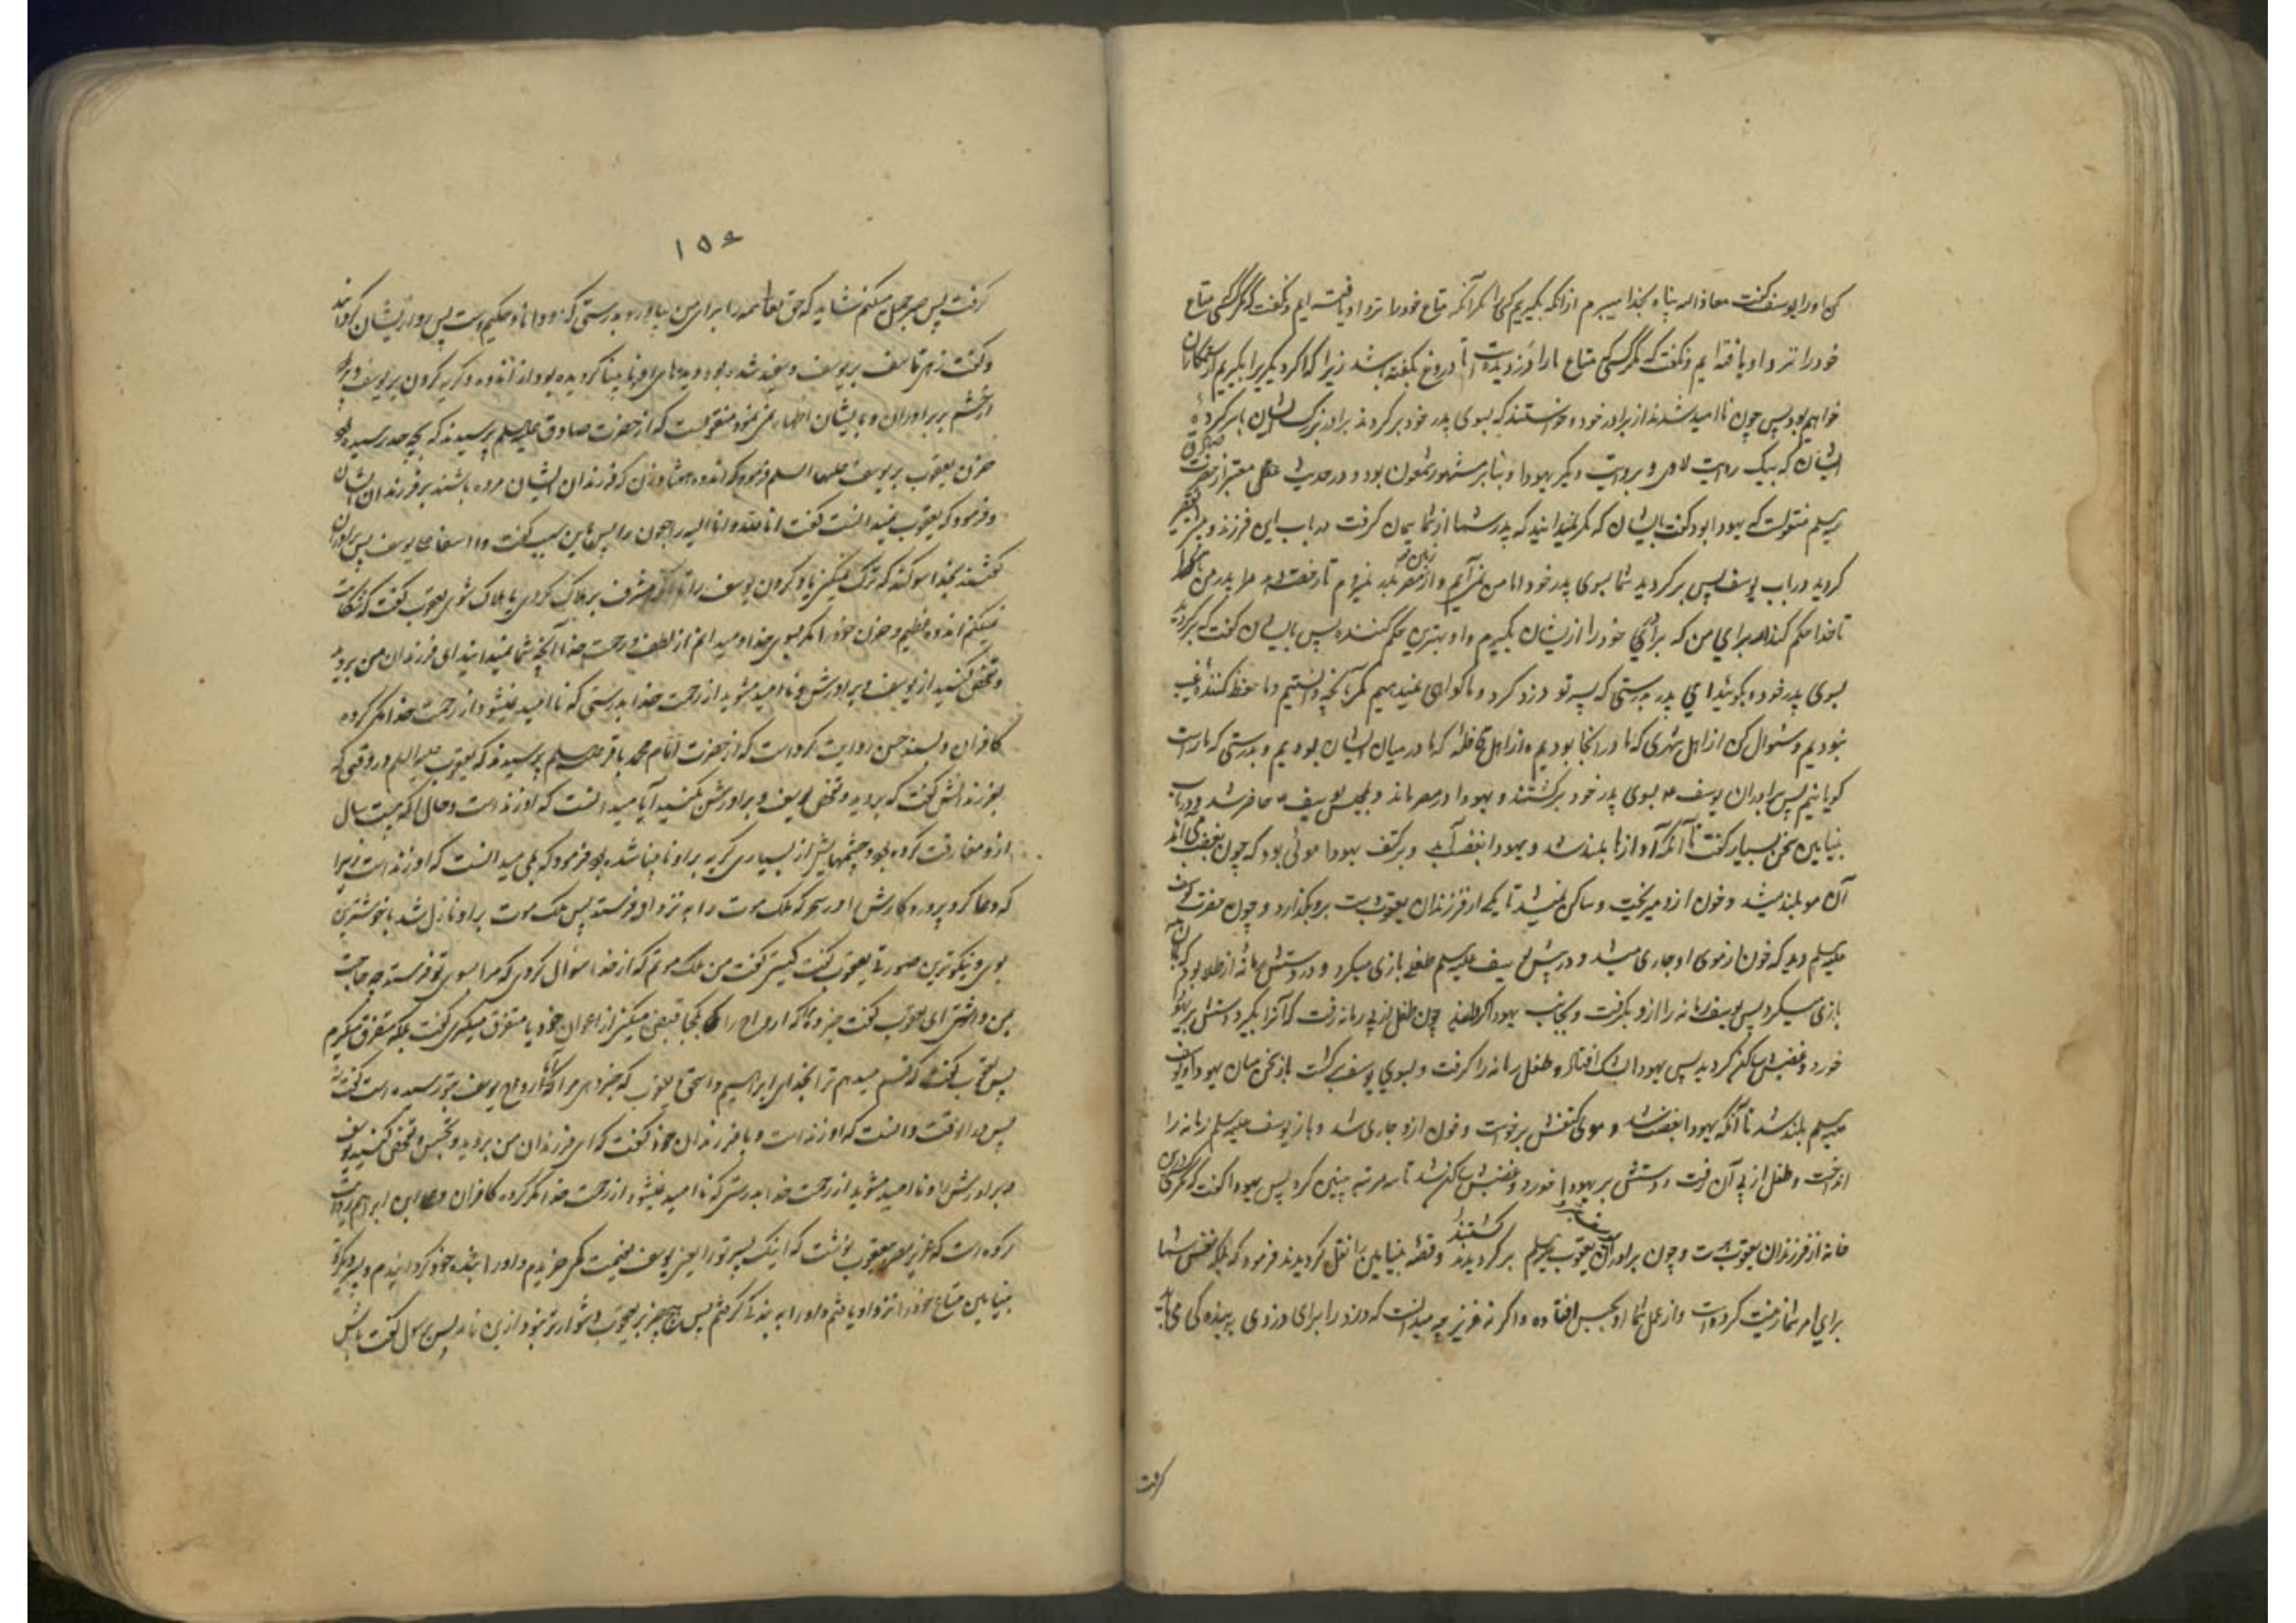 کن او را یوسف گفت معاذ الله پناه بخدا میبرم از آنکه بگیریم کسی را مگر آنکه متاع خود را نزد او یافته ایم و نگفت که مگر کسی متاع
خود را نزد او یافته ایم و نگفت که مگر کسی متاع ما را دزدیده است تا دروغ نگفته باشد زیرا که اگر دیگریرا بگیریم از ستمکاران
خواهیم بود پس چون ناامید شدند از برادر خود و خواستند که بسوی پدر خود برگردند برادر بزرگ ایشان
ایشان که بیک روایت لاوی و بروایت دیگر یهودا و بنابر مشهور شمعون بود و در حدیث معتبر از حضرت صادق
علیه السلم منقولست که یهودا بود گفت بایشان که مگر نمیدانید که پدر شما از شما پیمان گرفت در باب این فرزند و تقصیر
کردید در باب یوسف پس برگردید شما بسوی پدر خود اما من نمی آیم و از زمین مصر بدر نمیروم تا رخصت دهد مرا پدر من یا آنکه
تا خدا حکم کند از برای من که برادر خود را از ایشان بگیرم و او بهترین حکم کننده پس بایشان گفت که برگردید
بسوی پدر خود و بگوئید ای پدر بدرستی که پسر تو دزد کرد و ما گواهی نمیدهیم مگر بآنچه دانستیم و ما حفظ کننده غیب
نبودیم و سئوال کن از اهل شهری که ما در آنجا بودیم و از اهل قافله که ما در میان ایشان بودیم و بدرستی که ما راست
گویانیم پس برادران یوسف بسوی پدر خود برگشتند و یهودا در مصر ماند و بمجلس یوسف حاضر شد و در باب
بنیامین سخن بسیار گفت تا آنکه آوازها بلند شد و یهودا بغضب آمد و بر کتف یهودا موئی بود که چون بغضب می آمد
آن مو بلند میشد و خون ازو میریخت و ساکن نمیشد تا یکی از فرزندان یعقوب دست برو بگذارد و چون حضرت یوسف
علیه السلم دید که خون از موی او جاری میشد و در پیش یوسف علیه السلم طفلی بازی میکرد و در دستش رمانه از طلا بود که بآن
بازی میکرد پس یوسف رمانه را ازو بگرفت و بجانب یهودا گردانید چون طفل از پی رمانه رفت که آنرا بگیرد دستش بر یهودا
خورد و غضبش ساکن گردید پس یهودا بشک افتاد و طفل رمانه را گرفت و بسوی یوسف برگشت باز سخن میان یهودا و یوسف
علیه السلم بلند شد تا آنکه یهودا بغضب شد و موی کتفش برخواست و خون ازو جاری شد و باز یوسف علیه السلم رمانه را
انداخت و طفل از پی آن رفت و دستش بر یهودا خورد و غضبش ساکن شد تا سه مرتبه چنین کرد پس یهودا گفت که مگر درین
خانه از فرزندان یعقوب هست و چون برادران یوسف بنزد یعقوب علیه السلم برگردیدند گشتند و قصه بنیامین را نقل گردیدند فرمود که بلکه نفس شما
برای شما امر زینت کرده است و از عمل شما او بحبس افتاده و اگر نه عزیز چه میدانست که دزد را برای دزدی به بندگی می باید
گرفت
۱۵۶
گرفت پس صبر جمیل میکنم شاید که حق تعالی همه را برای من بیاورد بدرستی که او دانا و حکیم است پس رو از ایشان گردانید
و گفت زهی تاسف بر یوسف و سفید شده بود دیدهای او نابینا گردیده بود از اندوه و گریه کردن بر یوسف و پر بود
از خشم بر برادران و بایشان اظهار نمی نمود منقولست که از حضرت صادق علیه السلم پرسیدند که بچه حد رسیده بود
حزن یعقوب بر یوسف علیهما السلم فرمود که اندوه هفتاد زن که فرزندان ایشان مرده باشند بر فرزندان ایشان
و فرمود که یعقوب نمیدانست گفت انا لله و انا الیه راجعون را پس باین سبب گفت وا اسفا علی یوسف پس برادران
گفتند بخدا سوگند که ترک نمیکنی یاد کردن یوسف را تا آنکه مشرف بر هلاک گردی یا هلاک شوی یعقوب گفت که شکایت
نمیکنم اندوه عظیم و حزن خود را مگر بسوی خدا و میدانم از لطف و رحمت خدا آنچه شما نمیدانید ای فرزندان من بروید
و تفحص کنید از یوسف و برادرش و ناامید مشوید از رحمت خدا بدرستی که ناامید نمیشود از رحمت خدا مگر گروه
کافران و بسند حسن روایت کرده است که از حضرت امام محمد باقر علیه السلم پرسیدند که یعقوب علیه السلم در وقتی که
بفرزندانش گفت که بروید و تفحص یوسف و برادرش بکنید آیا میدانست که او زنده است و حال آنکه بیست سال
ازو مفارقت کرده بود و چشمهایش از بسیاری گریه بر او نابینا شده بود فرمود که بلی میدانست که او زنده است زیرا
که دعا کرد پروردگارش را در سحر که ملک موت را به نزد او فرستد پس ملک موت بر او نازل شد با خوشترین
بوی و نیکوترین صورتی یعقوب گفت کیستی گفت من ملک موتم که از خدا سؤال کردی که مرا بسوی تو فرستد چه حاجت
بمن داشتی ای یعقوب گفت خبر ده مرا که ارواح را یکجا قبض میکنی از اعوان خود یا متفرق میگیری گفت بلکه متفرق میگیرم
پس یعقوب گفت که قسم میدهم ترا بخدای ابراهیم و اسحق و یعقوب که خبر دهی مرا که آیا روح یوسف بتو رسیده است گفت نه
پس در آنوقت دانست که او زنده است و با فرزندان خود گفت که ای فرزندان من بروید و تجسس و تفحص کنید یوسف
و برادرش را و ناامید مشوید از رحمت خدا بدرستی که ناامید نمیشود از رحمت خدا مگر گروه کافران و علی ابن ابراهیم روایت
کرده است که عزیز مصر بیعقوب نوشت که اینک پسر تو را یعنی یوسف بقیمت کمی خریدم و او را بنده خود گردانیدم و پسر دیگر تو
بنیامین متاع خود را نزد او یافتم و او را به بندگی گرفتم پس هیچ چیز بر یعقوب دشوارتر نبود ازین نامه پس برسول گفت باش